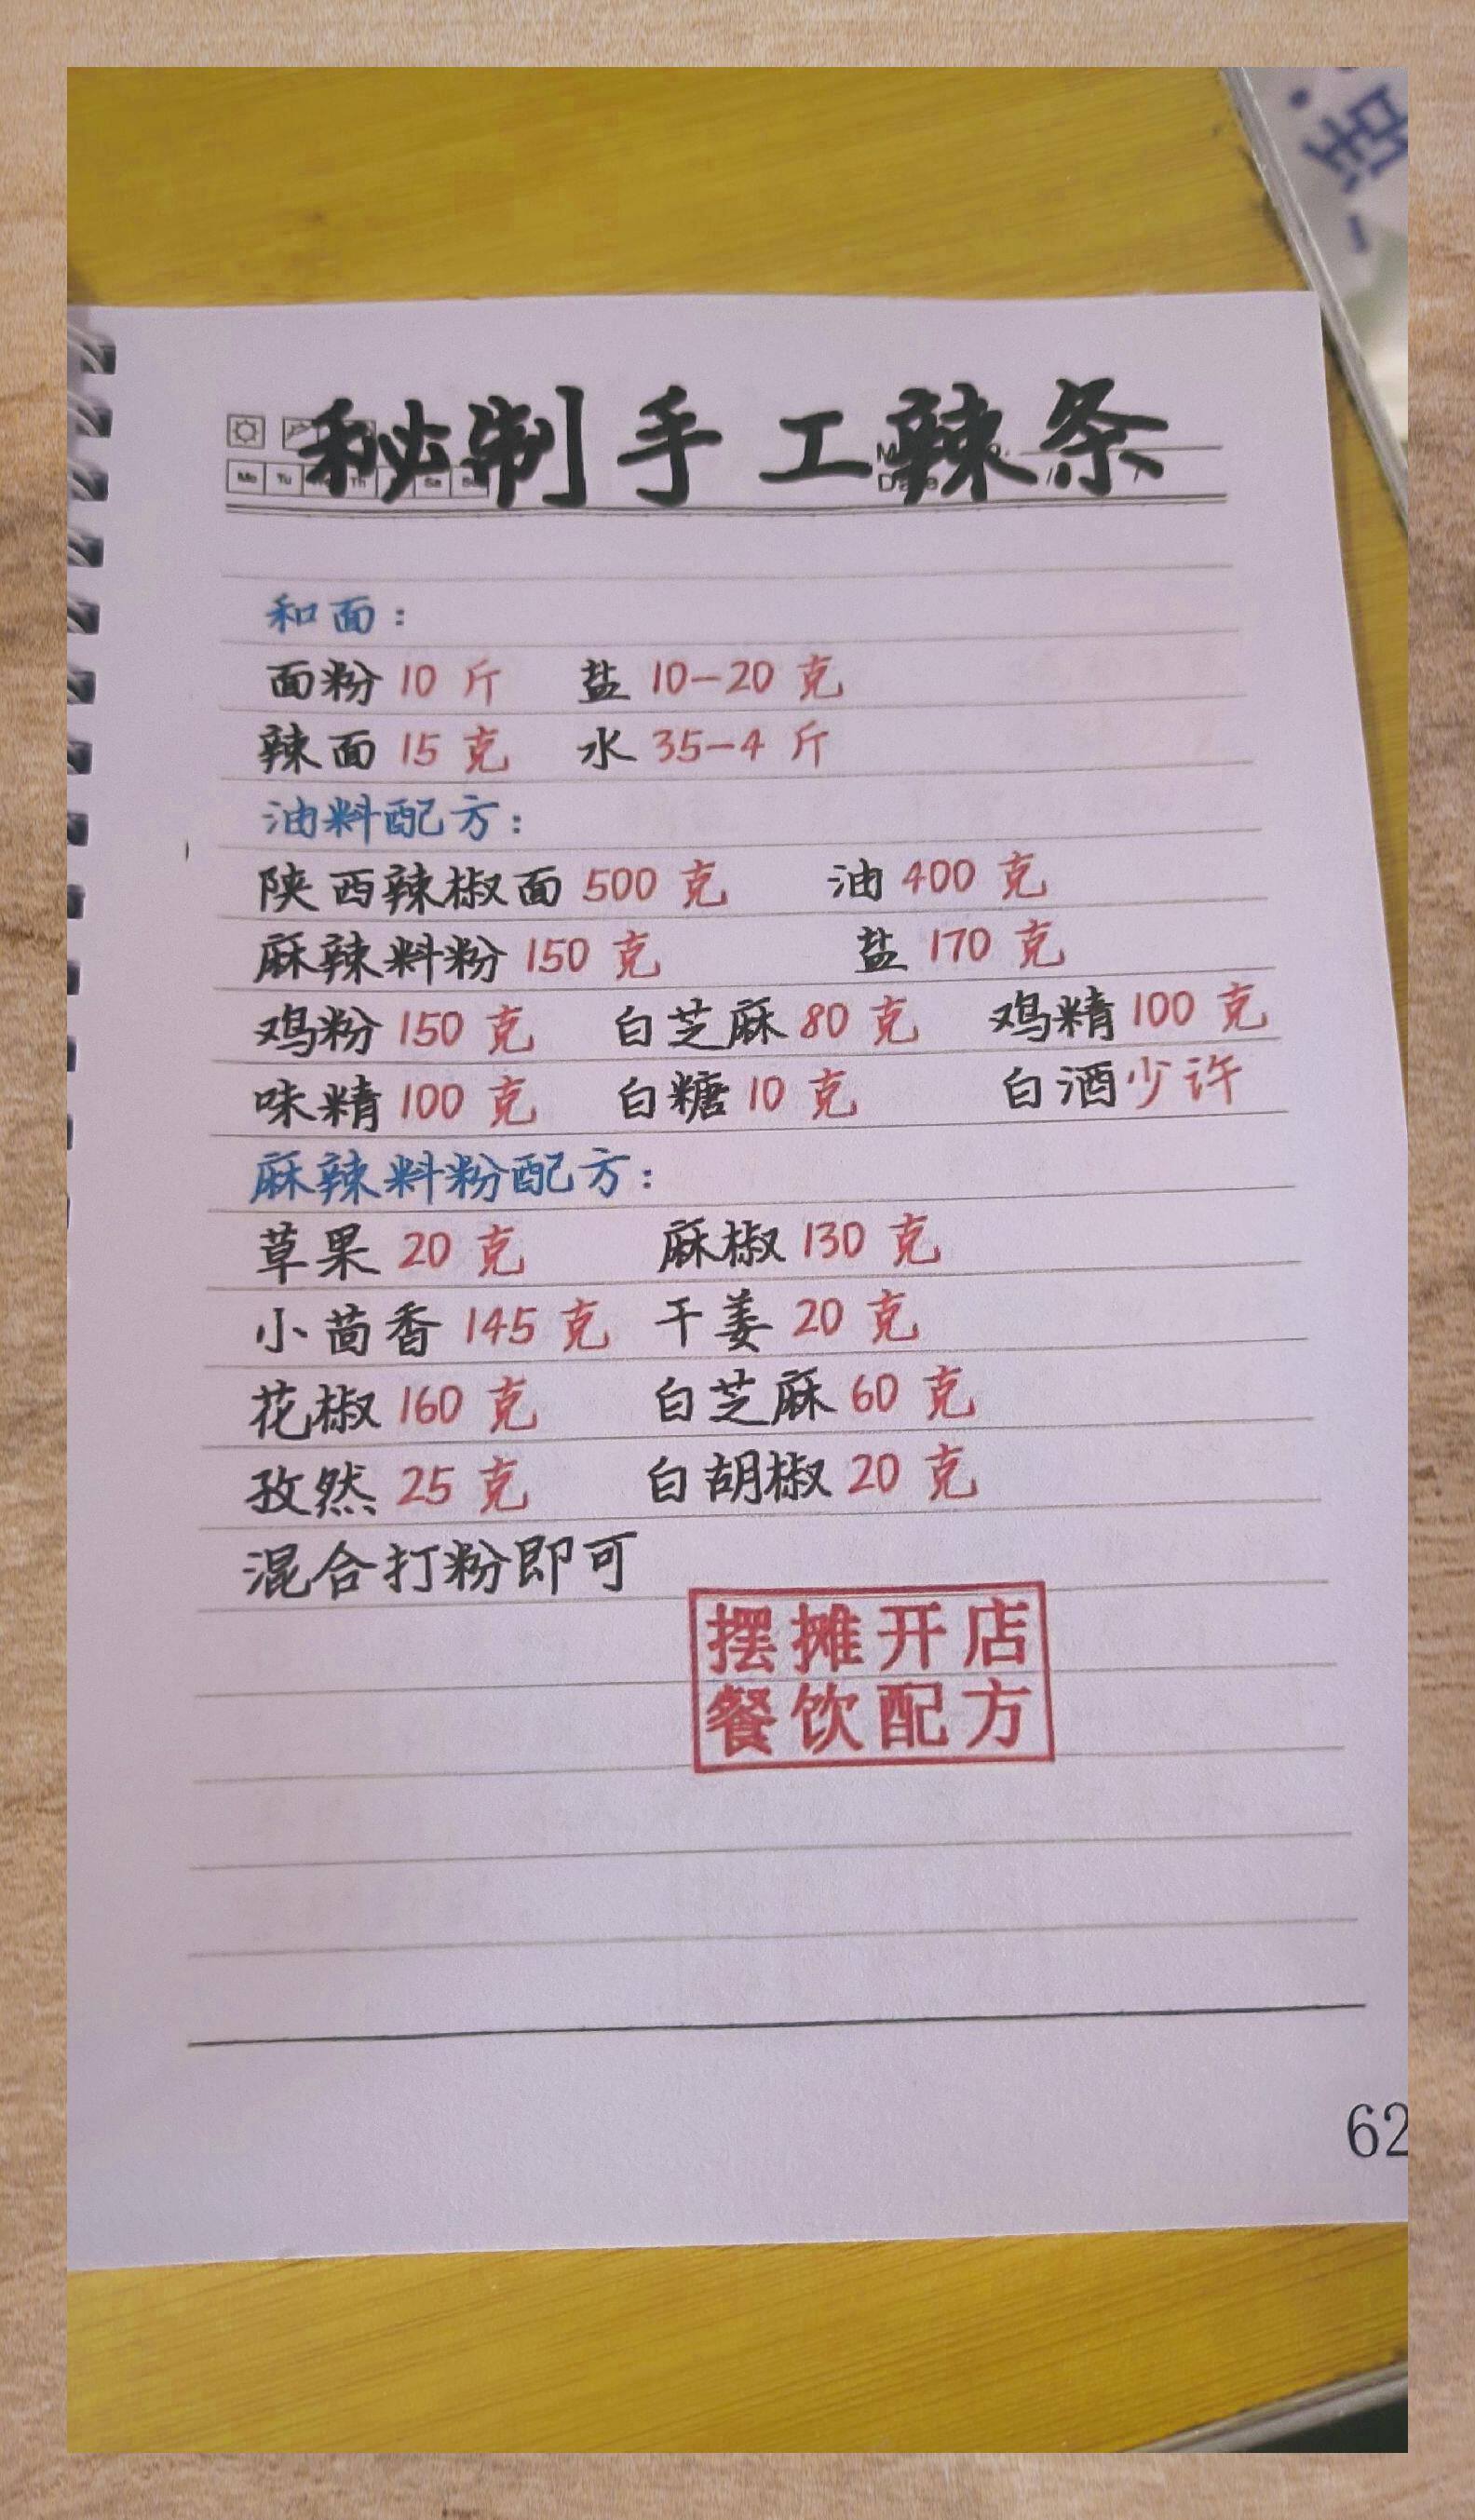 秘制手工辣条
Mo Tu Th Sa Su
和面:
面粉 10 斤 盐 10-20 克
辣面 15 克 水 35-4 斤
油料配方:
陕西辣椒面 500 克 油 400 克
麻辣料粉 150 克 盐 170 克
鸡粉 150 克 白芝麻 80 克 鸡精 100 克
味精 100 克 白糖 10 克 白酒少许
麻辣料粉配方:
草果 20 克 麻椒 130 克
小茴香 145 克 干姜 20 克
花椒 160 克 白芝麻 60 克
孜然 25 克 白胡椒 20 克
混合打粉即可
摆摊开店
餐饮配方
62